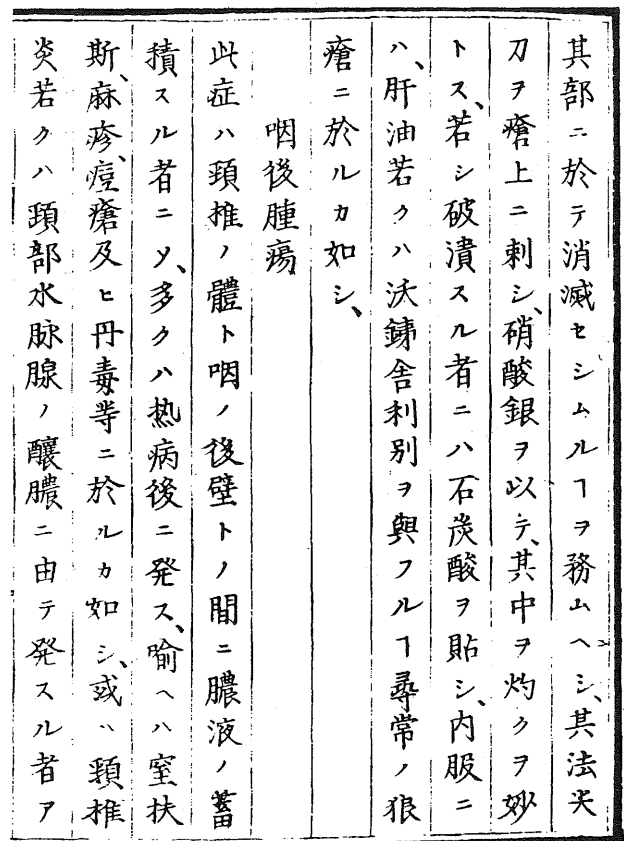 其部ニ於テ消滅セシムルヿヲ務ムヘシ、其法尖
刀ヲ瘡上ニ刺シ、硝酸銀ヲ以テ、其中ヲ灼クヲ妙
トス、若シ破潰スル者ニハ石炭酸ヲ貼シ、内服ニ
ハ、肝油若クハ沃鋳舎利別ヲ與フルヿ尋常ノ狼
瘡ニ於ルカ如シ、
咽後腫瘍
此症ハ頚椎ノ體ト咽ノ後壁トノ間ニ膿液ノ蓄
積スル者ニメ、多クハ热病後ニ発ス、喻ヘハ窒扶
斯、麻疹、痘瘡及ヒ丹毒等ニ於ルカ如シ、或ハ頚椎
炎若クハ頚部水脉腺ノ釀膿ニ由テ発スル者ア